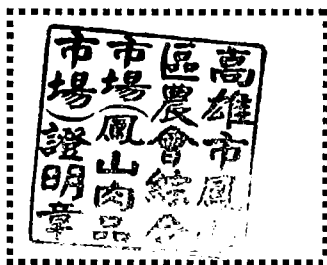 高雄市鳳
區農會綜合
市場(鳳山肉品
市場)證明章